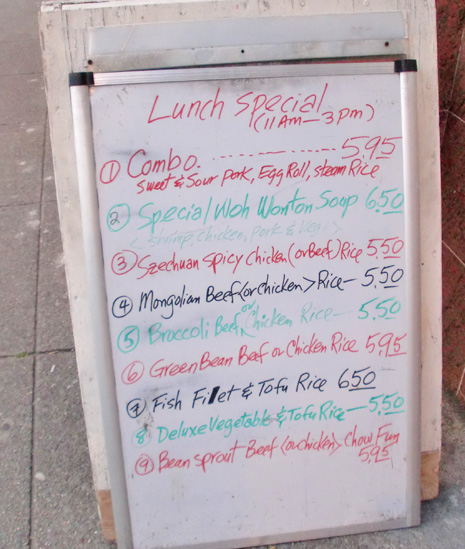 Lunch Special
(11Am—3pm)
① Combo. ---------- 5.95
Sweet & Sour pork, Egg Roll, steam Rice
② Special Woh Wonton Soup 6.50
< shrimp, chicken, pork & Veg >
③ Szechuan Spicy Chicken (or Beef) Rice 5.50
④ Mongolian Beef <or chicken> Rice — 5.50
⑤ Broccoli Beef or Chicken Rice — 5.50
⑥ Green Bean Beef or Chicken Rice 5.95
⑦ Fish Filet & Tofu Rice 6.50
8 Deluxe Vegetable & Tofu Rice — 5.50
⑨ Bean sprout Beef <or chicken> Chow Fun
5.95